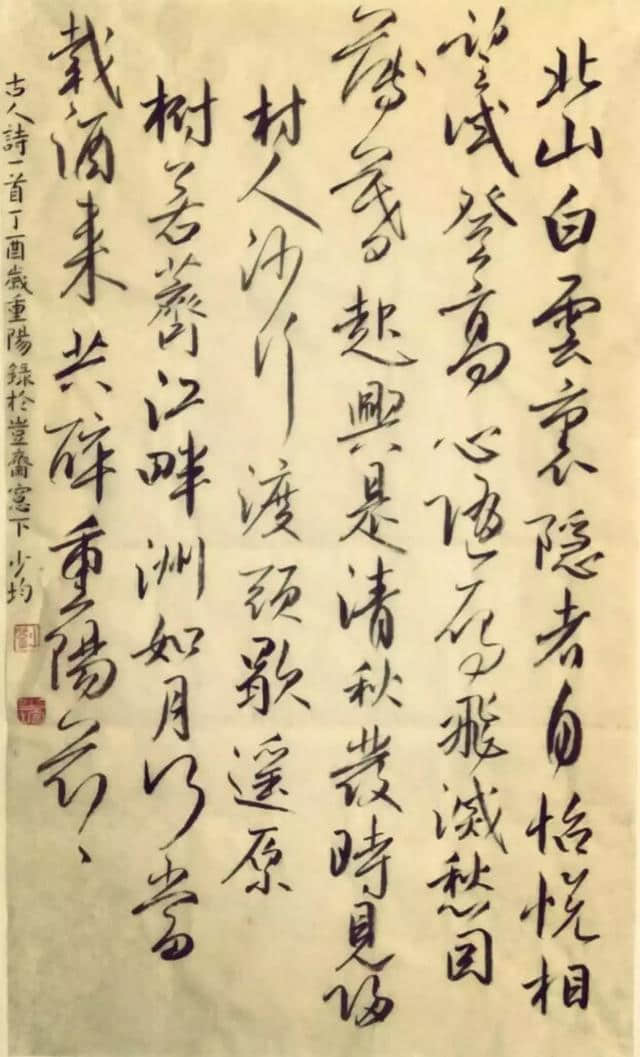 北山白雲裏隐者自怡悅相
望試登高心隨雁飛滅愁因
薄暮起興是清秋發時見歸
村人沙行渡頭歇遥原
樹若薺江畔洲如月何當
載酒来共醉重陽節
古人詩一首丁酉歲重陽錄於豈齋窓下少均
劉